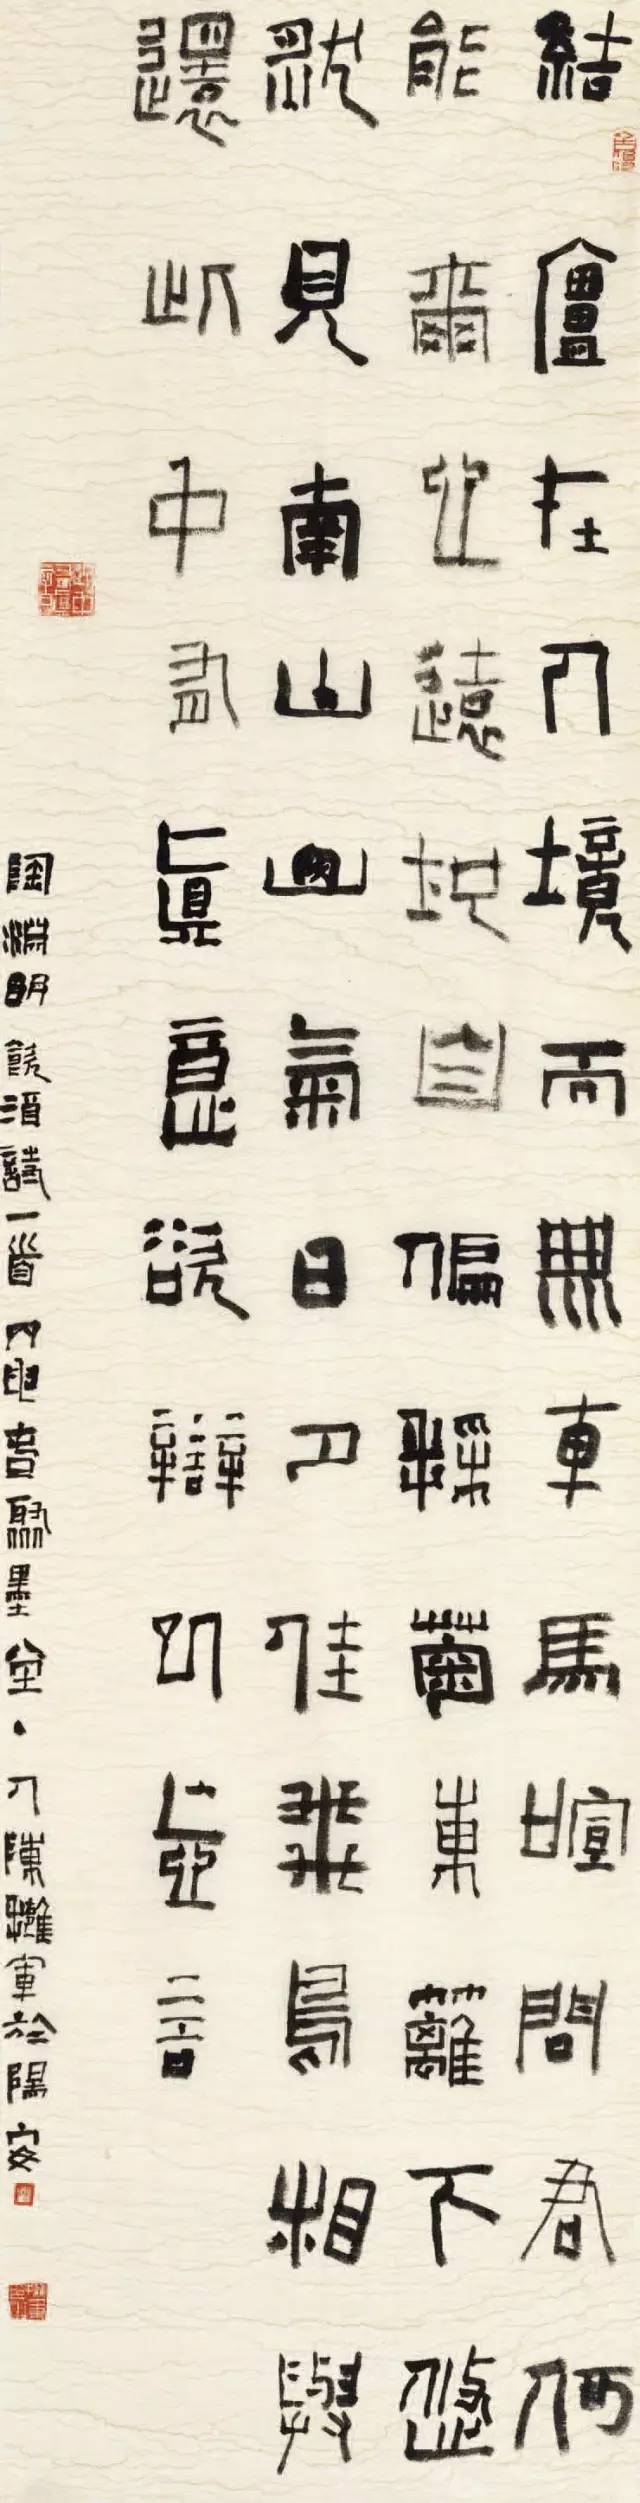 結廬在人境而無車馬喧問君何
能爾心遠地自偏採菊東籬下悠
然見南山山氣日夕佳飛鳥相與
還此中有真意欲辯已忘言
陶淵明飲酒詩一首丙申春聚墨堂主人陳軍於陽安